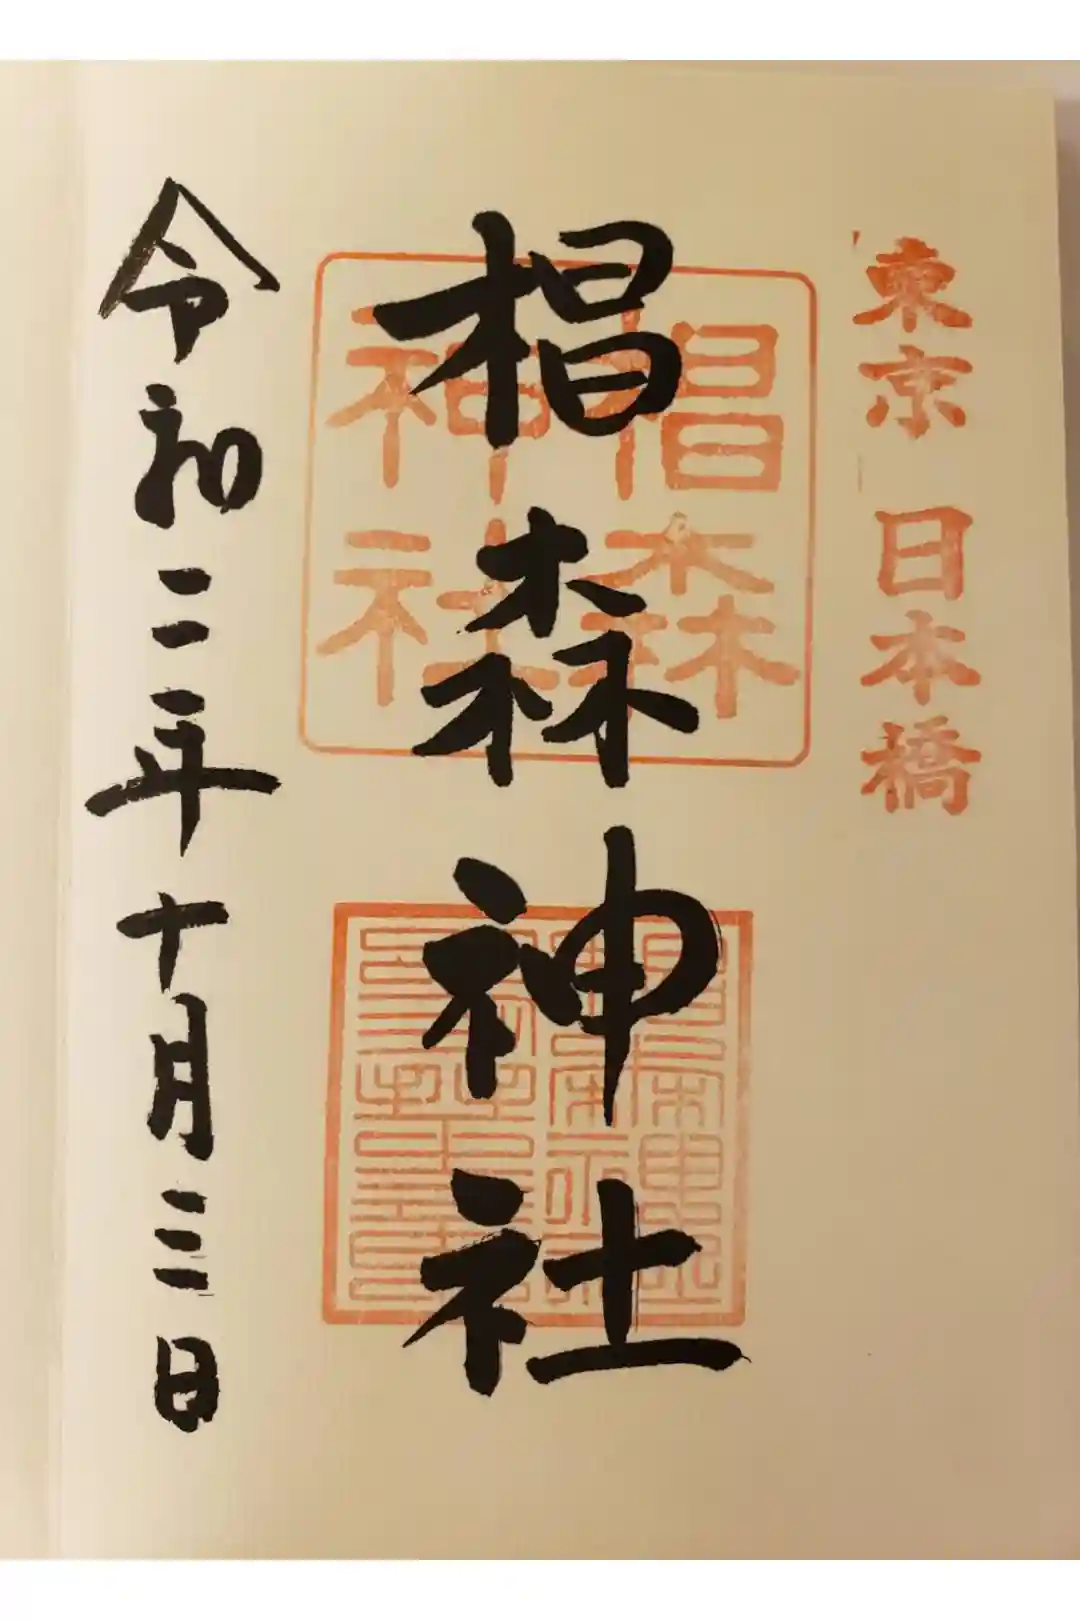 東京 日本橋
椙森神社
椙森
神社
令和二年十月三日